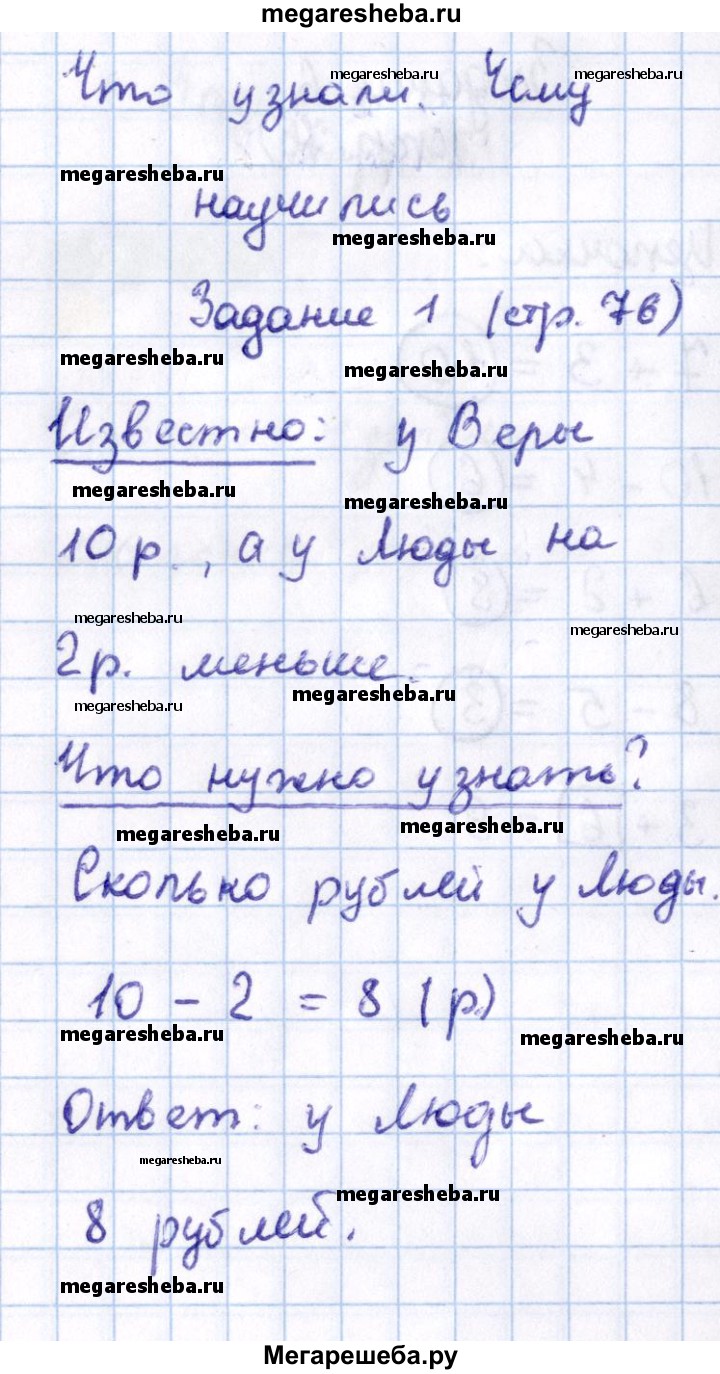 megaresheba.ru
Что узнали. Чему
megaresheba.ru megaresheba.ru
megaresheba.ru
научились
megaresheba.ru
Задание 1 (стр. 76)
megaresheba.ru megaresheba.ru
Известно: у Веры
megaresheba.ru megaresheba.ru
10 р., а у Люды на
megaresheba.ru megaresheba.ru
2 р. меньше.
megaresheba.ru megaresheba.ru
Что нужно узнать?
megaresheba.ru megaresheba.ru
Сколько рублей у Люды.
10 - 2 = 8 (р.)
megaresheba.ru megaresheba.ru
Ответ: у Люды
megaresheba.ru megaresheba.ru
8 рублей.
megaresheba.ru
Мегарешеба.ру